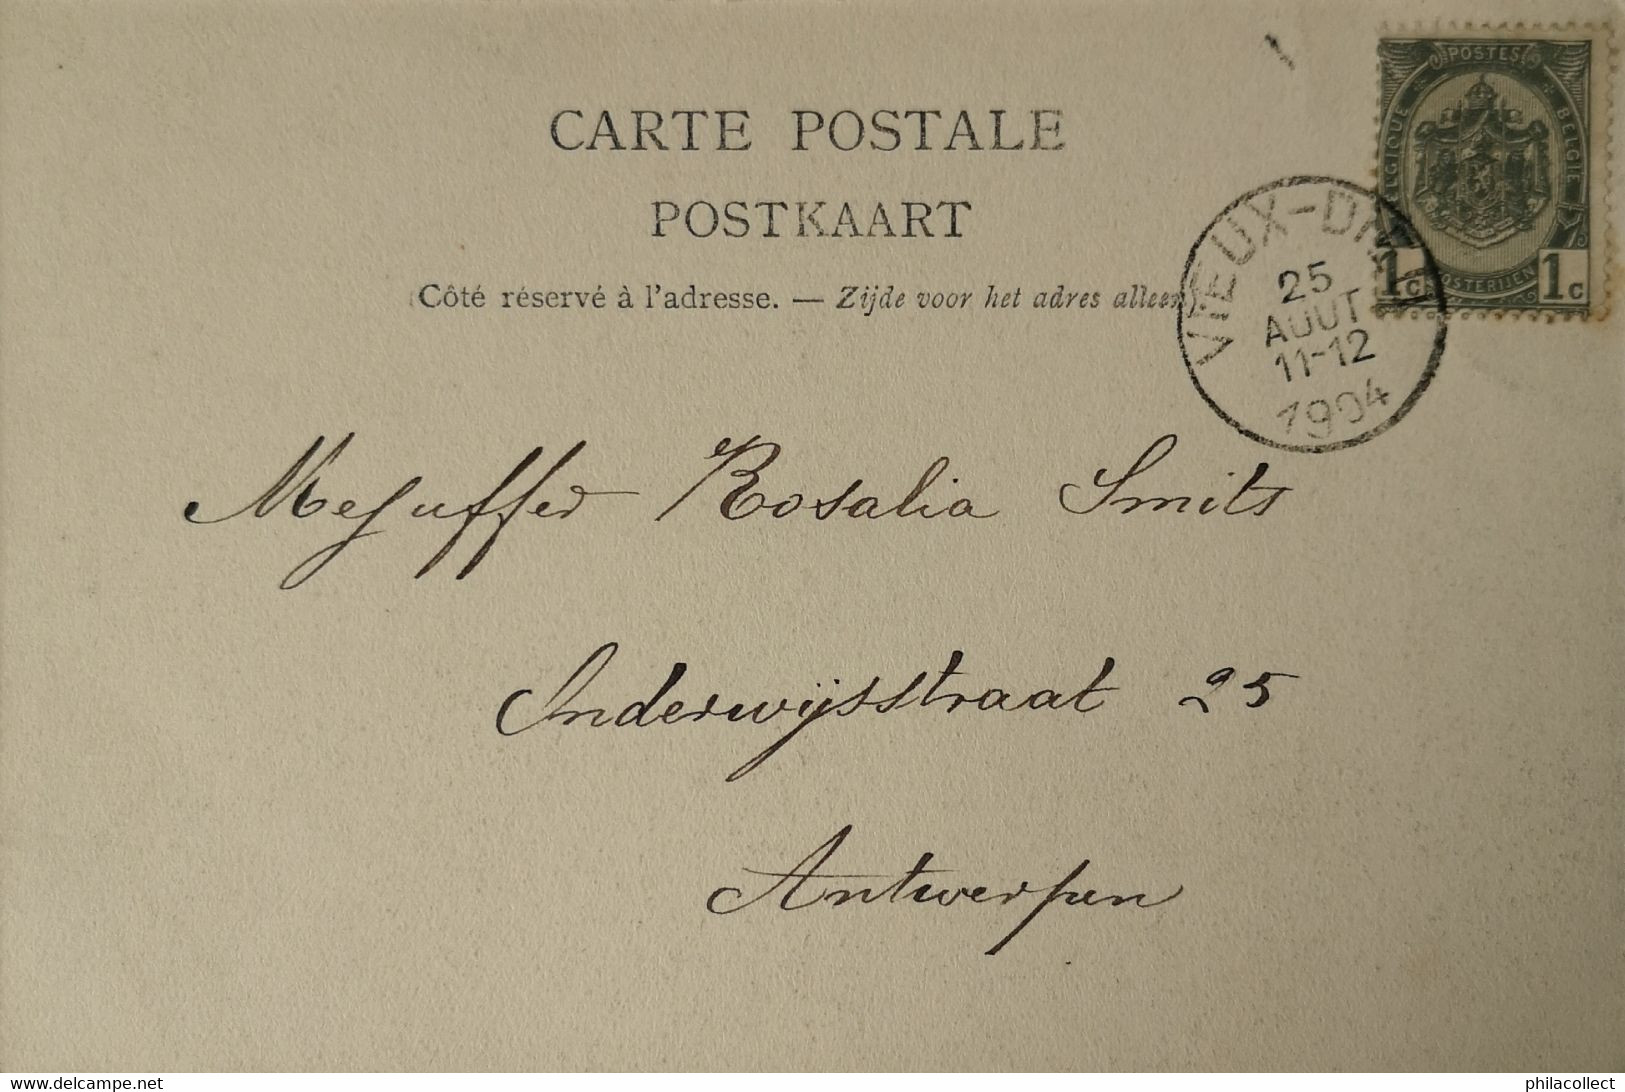 POSTES
BELGIQUE BELGIE
POSTERIJEN
1c 1c
CARTE POSTALE
POSTKAART
(Côté réservé à l'adresse. — Zijde voor het adres alleen).
VIEUX-D
25
AOUT
11-12
1904
Mejuffer Rosalia Smits
Onderwijsstraat 25
Antwerpen
Delcampe.net
philacollect